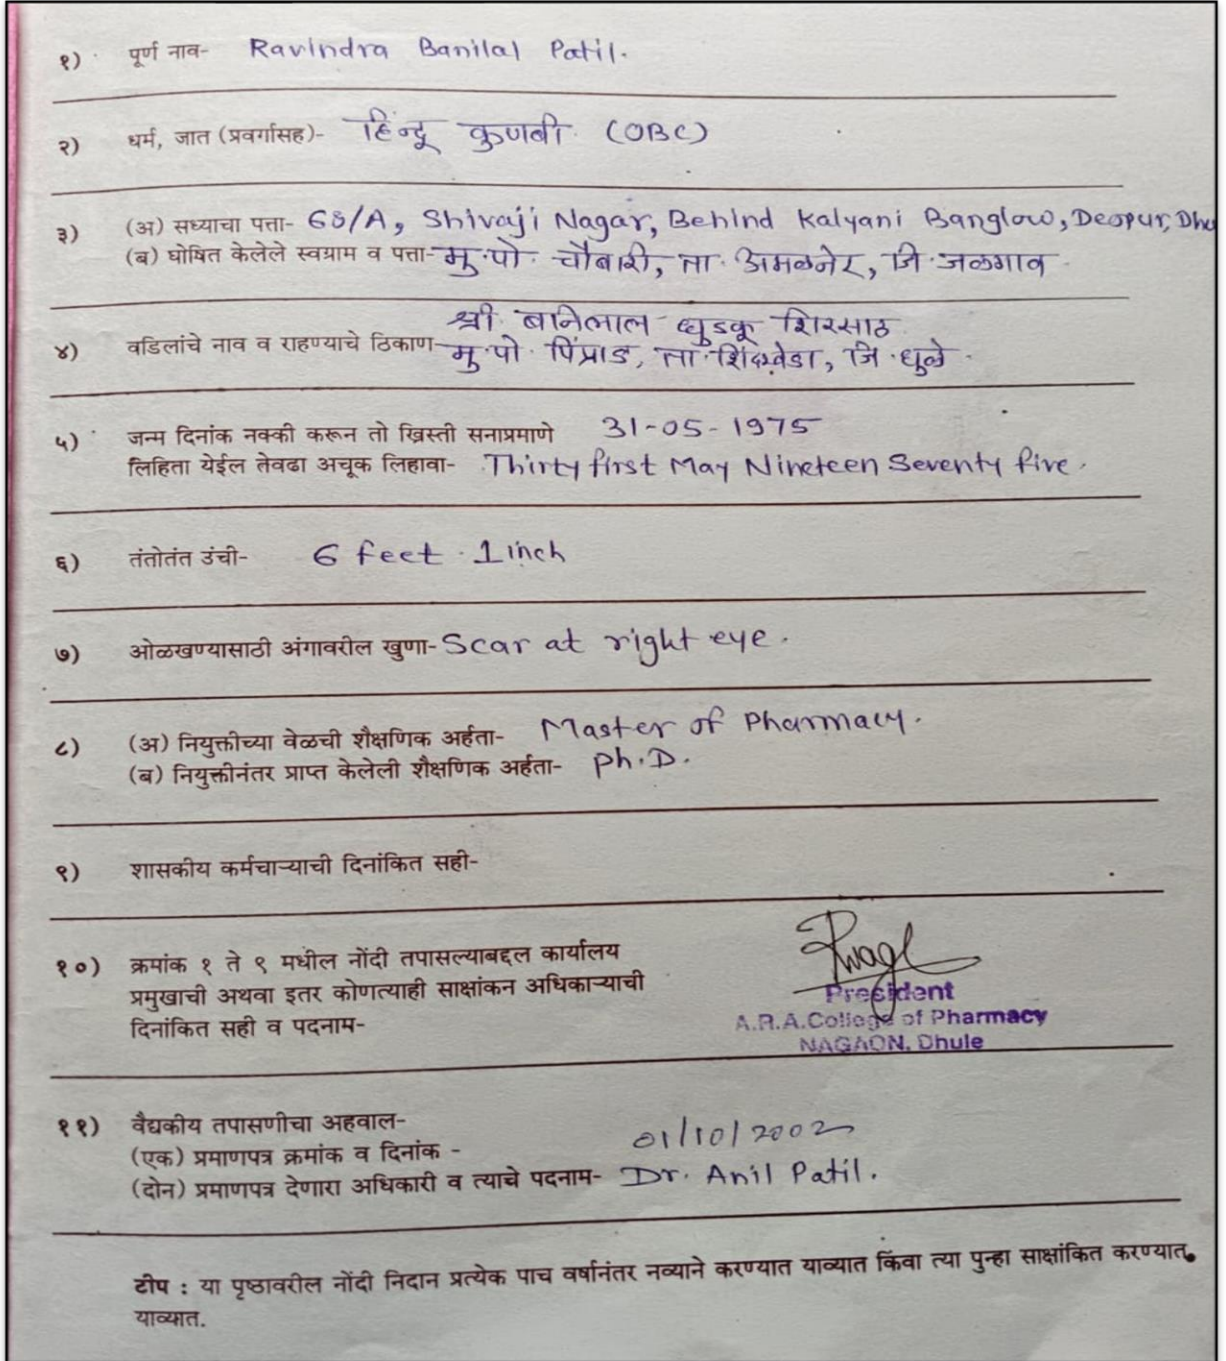 १) पूर्ण नाव- Ravindra Banilal Patil.
२) धर्म, जात (प्रवर्गासह)- हिन्दू कुणबी (OBC)
३) (अ) सध्याचा पत्ता- 68/A, Shivaji Nagar, Behind Kalyani Banglow, Deopur, Dhu
(ब) घोषित केलेले स्वग्राम व पत्ता- मु.पो. चौबारी, ता. अमळनेर, जि. जळगाव
श्री. बानिलाल धुडकू शिरसाठ
४) वडिलांचे नाव व राहण्याचे ठिकाण- मु.पो. पिंप्राड, ता. शिंदखेडा, जि. धुळे.
५) जन्म दिनांक नक्की करून तो ख्रिस्ती सनाप्रमाणे 31-05-1975
लिहिता येईल तेवढा अचूक लिहावा- Thirty first May Nineteen Seventy five.
६) तंतोतंत उंची- 6 feet 1 inch
७) ओळखण्यासाठी अंगावरील खुणा- Scar at right eye.
८) (अ) नियुक्तीच्या वेळची शैक्षणिक अर्हता- Master of Pharmacy.
(ब) नियुक्तीनंतर प्राप्त केलेली शैक्षणिक अर्हता- Ph.D.
९) शासकीय कर्मचाऱ्याची दिनांकित सही-
१०) क्रमांक १ ते ९ मधील नोंदी तपासल्याबद्दल कार्यालय
प्रमुखाची अथवा इतर कोणत्याही साक्षांकन अधिकाऱ्याची
दिनांकित सही व पदनाम-
President
A.R.A.College of Pharmacy
NAGAON, Dhule
११) वैद्यकीय तपासणीचा अहवाल-
(एक) प्रमाणपत्र क्रमांक व दिनांक - 01/10/2002
(दोन) प्रमाणपत्र देणारा अधिकारी व त्याचे पदनाम- Dr. Anil Patil.
टीप : या पृष्ठावरील नोंदी निदान प्रत्येक पाच वर्षानंतर नव्याने करण्यात याव्यात किंवा त्या पुन्हा साक्षांकित करण्यात
याव्यात.